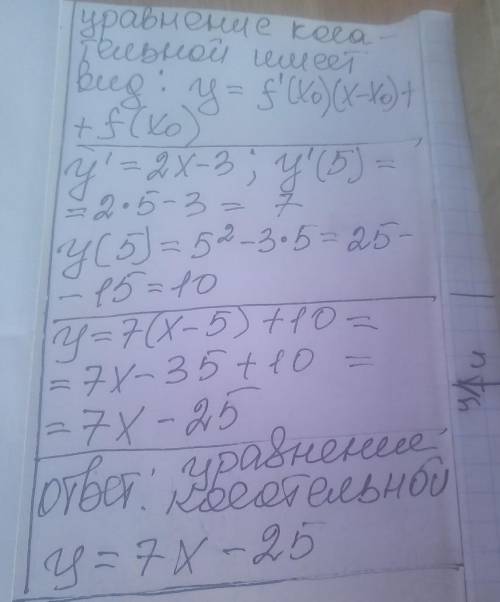 уравнение каса-
тельной имеет
вид: y = f'(x₀)(x-x₀)+
+ f(x₀)
y' = 2x-3; y'(5) =
= 2•5-3 = 7
y(5) = 5²-3•5 = 25-
- 15 = 10
y = 7(x-5)+10 =
= 7x-35+10 =
= 7x-25
ответ: уравнение
косательной
y = 7x-25